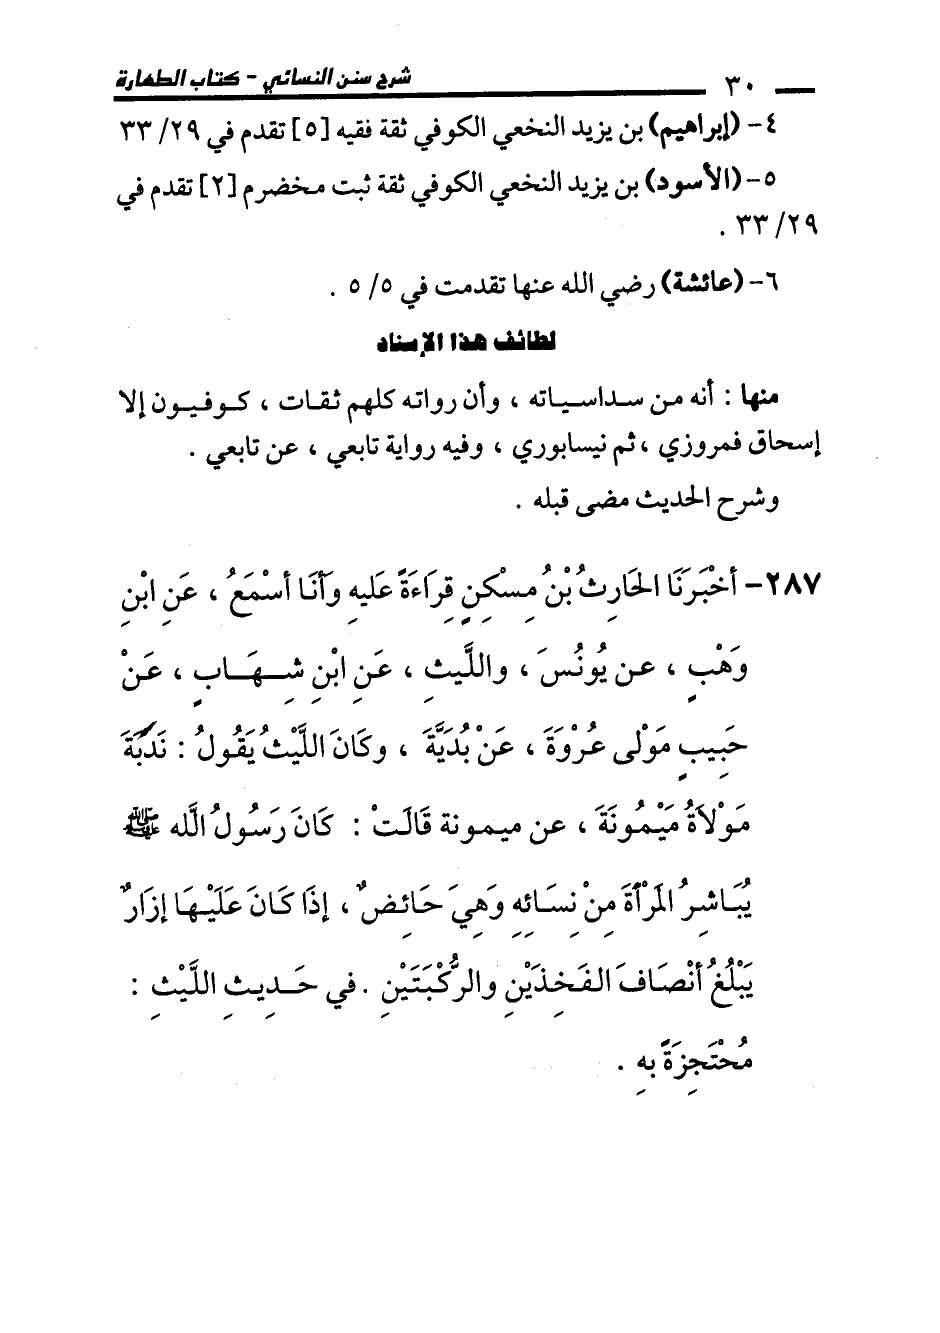 ٣٠ شرح سنن النسائي - كتاب الطهارة
٤- (إبراهيم) بن يزيد النخعي الكوفي ثقة فقيه [٥] تقدم في ٢٩/ ٣٣
٥- (الأسود) بن يزيد النخعي الكوفي ثقة ثبت مخضرم [٢] تقدم في
٢٩/ ٣٣ .
٦- (عائشة) رضي الله عنها تقدمت في ٥/ ٥ .
لطائف هذا الإسناد
منها : أنه من سداسياته ، وأن رواته كلهم ثقات ، كوفيون إلا
إسحاق فمروزي ، ثم نيسابوري ، وفيه رواية تابعي ، عن تابعي .
وشرح الحديث مضى قبله .
٢٨٧- أخْبَرَنَا الحَارِثُ بْنُ مِسْكِينٍ قِرَاءَةً عَلَيهِ وَأَنَا أسْمَعُ ، عَنِ ابْنِ
وَهْبٍ ، عن يُونُسَ ، واللَّيثِ ، عَنِ ابْنِ شِهَابٍ ، عَنْ
حَبِيبٍ مَوْلى عُرْوَةَ ، عَنْ بُدَيَّةَ ، وكَانَ اللَّيْثُ يَقُولُ : نَدَبَةَ
مَوْلاَةُ مَيْمُونَةَ ، عن ميمونة قَالَتْ : كَانَ رَسُولُ اللَّه ﷺ
يُبَاشِرُ المَرْأةَ مِنْ نِسَائِهِ وَهِيَ حَائِضٌ ، إذَا كَانَ عَلَيْهَا إزَارٌ
يَبْلُغُ أنْصَافَ الفَخِذَيْنِ والرُّكْبَتَيْنِ . في حَدِيثِ اللَّيْثِ :
مُحْتَجِزَةً بهِ .